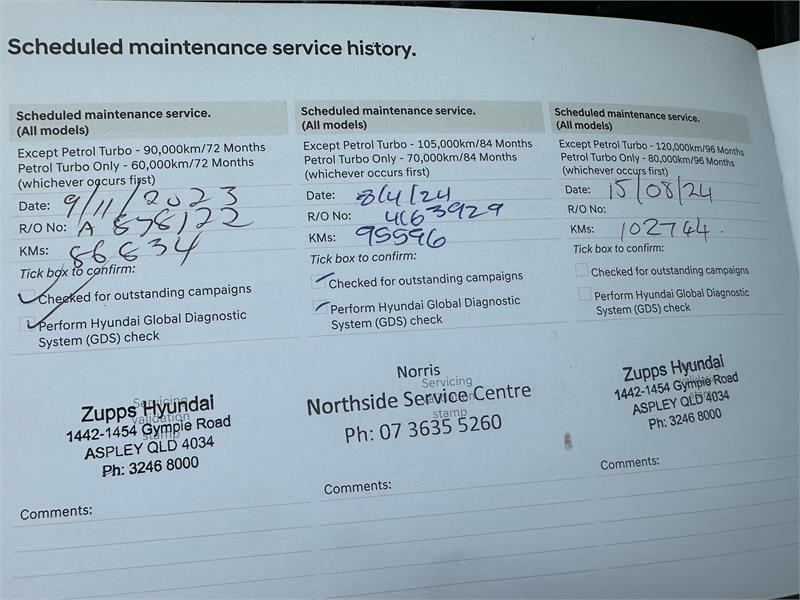 Scheduled maintenance service history.
Scheduled maintenance service.
(All models)
Except Petrol Turbo - 90,000km/72 Months
Petrol Turbo Only - 60,000km/72 Months
(whichever occurs first)
Date: 9/11/2023
R/O No: A 878122
KMs: 86834
Tick box to confirm:
Checked for outstanding campaigns
Perform Hyundai Global Diagnostic
System (GDS) check
Servicing
validation
stamp
Zupps Hyundai
1442-1454 Gympie Road
ASPLEY QLD 4034
Ph: 3246 8000
Comments:
Scheduled maintenance service.
(All models)
Except Petrol Turbo - 105,000km/84 Months
Petrol Turbo Only - 70,000km/84 Months
(whichever occurs first)
Date: 8/4/24
R/O No: 4163929
KMs: 95596
Tick box to confirm:
Checked for outstanding campaigns
Perform Hyundai Global Diagnostic
System (GDS) check
Servicing
validation
stamp
Norris
Northside Service Centre
Ph: 07 3635 5260
Comments:
Scheduled maintenance service.
(All models)
Except Petrol Turbo - 120,000km/96 Months
Petrol Turbo Only - 80,000km/96 Months
(whichever occurs first)
Date: 15/08/24
R/O No:
KMs: 102744.
Tick box to confirm:
Checked for outstanding campaigns
Perform Hyundai Global Diagnostic
System (GDS) check
Zupps Hyundai
1442-1454 Gympie Road
ASPLEY QLD 4034
Ph: 3246 8000
Comments: